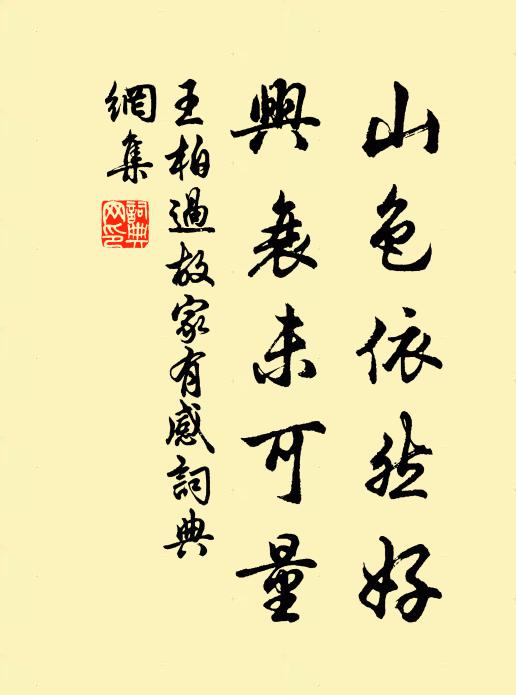 山色依然好
興衰未可量
王柏過故家有感詞典
網集
詞典
网印